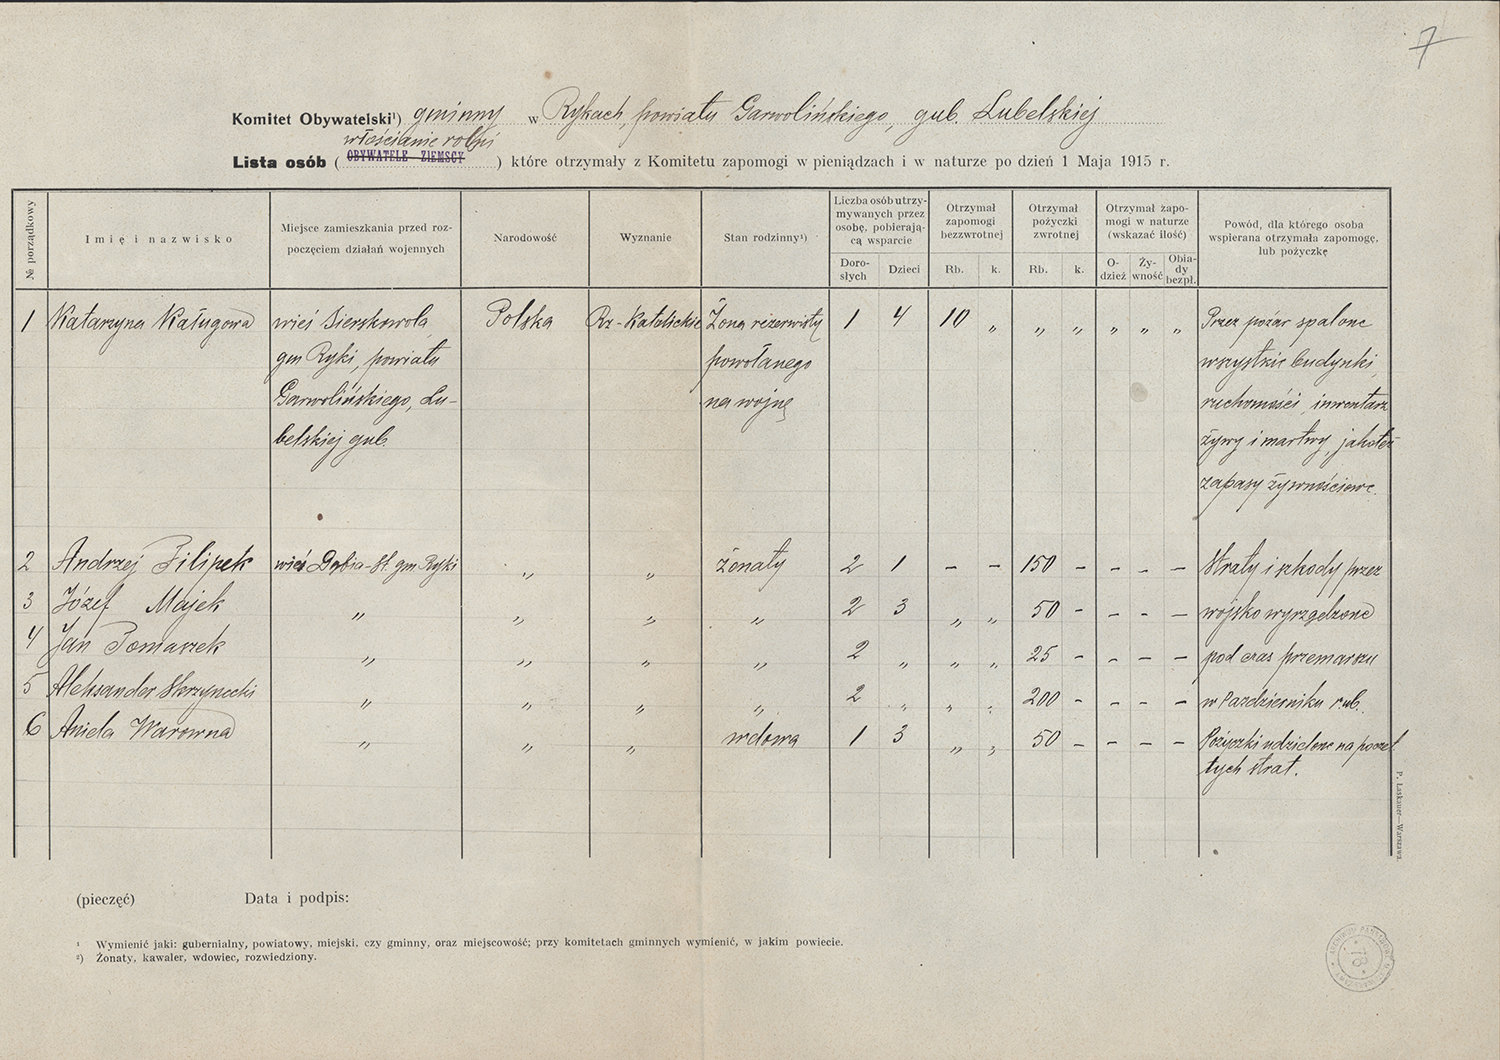 7
Komitet Obywatelski¹) gminny w Rykach, powiatu Garwolińskiego, gub. Lubelskiej
włościanie rolni
Lista osób (OBYWATELE ZIEMSCY) które otrzymały z Komitetu zapomogi w pieniądzach i w naturze po dzień 1 Maja 1915 r.
№ porządkowy
Imię i nazwisko
Miejsce zamieszkania przed rozpoczęciem działań wojennych
Narodowość
Wyznanie
Stan rodzinny²)
Liczba osób utrzymywanych przez osobę, pobierającą wsparcie
Dorosłych Dzieci
Otrzymał zapomogi bezzwrotnej
Rb. k.
Otrzymał pożyczki zwrotnej
Rb. k.
Otrzymał zapomogi w naturze (wskazać ilość)
Odzież Żywność Obiady bezpł.
Powód, dla którego osoba wspierana otrzymała zapomogę, lub pożyczkę
1 Katarzyna Kaługowa wieś Sierskowola Polska Rz-Katolickie Żona rezerwisty 1 4 10 „ „ „ „ „ „ Przez pożar spalone
gm Ryki, powiatu powołanego wszystkie budynki,
Garwolińskiego, Lu- na wojnę ruchomości, inwentarz
belskiej gub. żywy i martwy, jakoteż
zapasy żywnościowe.
2 Andrzej Filipek wieś Dąbia-St. gm Ryki „ „ żonaty 2 1 – – 150 – – – – Straty i szkody przez
3 Józef Majek „ „ „ „ 2 3 „ „ 50 – – – – wojsko wyrządzone
4 Jan Tomaszek „ „ „ „ 2 „ „ „ 25 – – – – pod czas przemarszu
5 Aleksander Skrzynecki „ „ „ „ 2 „ „ „ 200 – – – – w Październiku r.ub.
6 Aniela Warowna „ „ „ wdowa 1 3 „ „ 50 – – – – Pożyczki udzielone na poczet
tych strat.
P. Laskauer—Warszawa.
(pieczęć) Data i podpis:
¹ Wymienić jaki: gubernialny, powiatowy, miejski, czy gminny, oraz miejscowość; przy komitetach gminnych wymienić, w jakim powiecie.
²) Żonaty, kawaler, wdowiec, rozwiedziony.
78